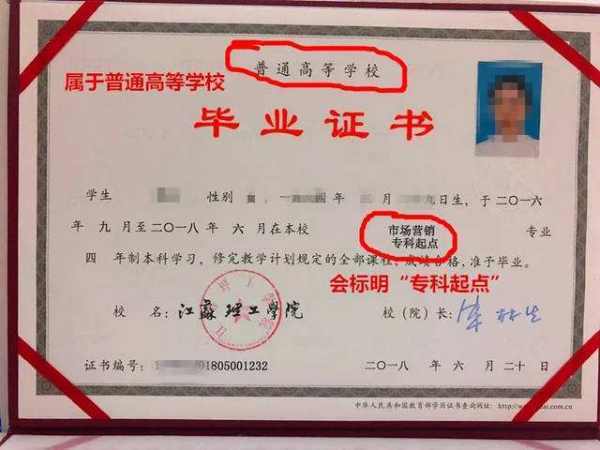 普通高等学校
属于普通高等学校
毕业证书
学生 性别 年 月 九日生，于二〇一六
年 九 月至二〇一八 年 六 月在本校 市场营销 专科起点 专业
四 年制本科学习，修完教学计划规定的全部课程，成绩合格，准予毕业。
会标明“专科起点”
校 名： 江苏理工学院 校（院）长：
证书编号：1 01805001232 二〇一八 年 六 月 二十 日
中华人民共和国教育部学历证书查询网址：http://www. .com.cn